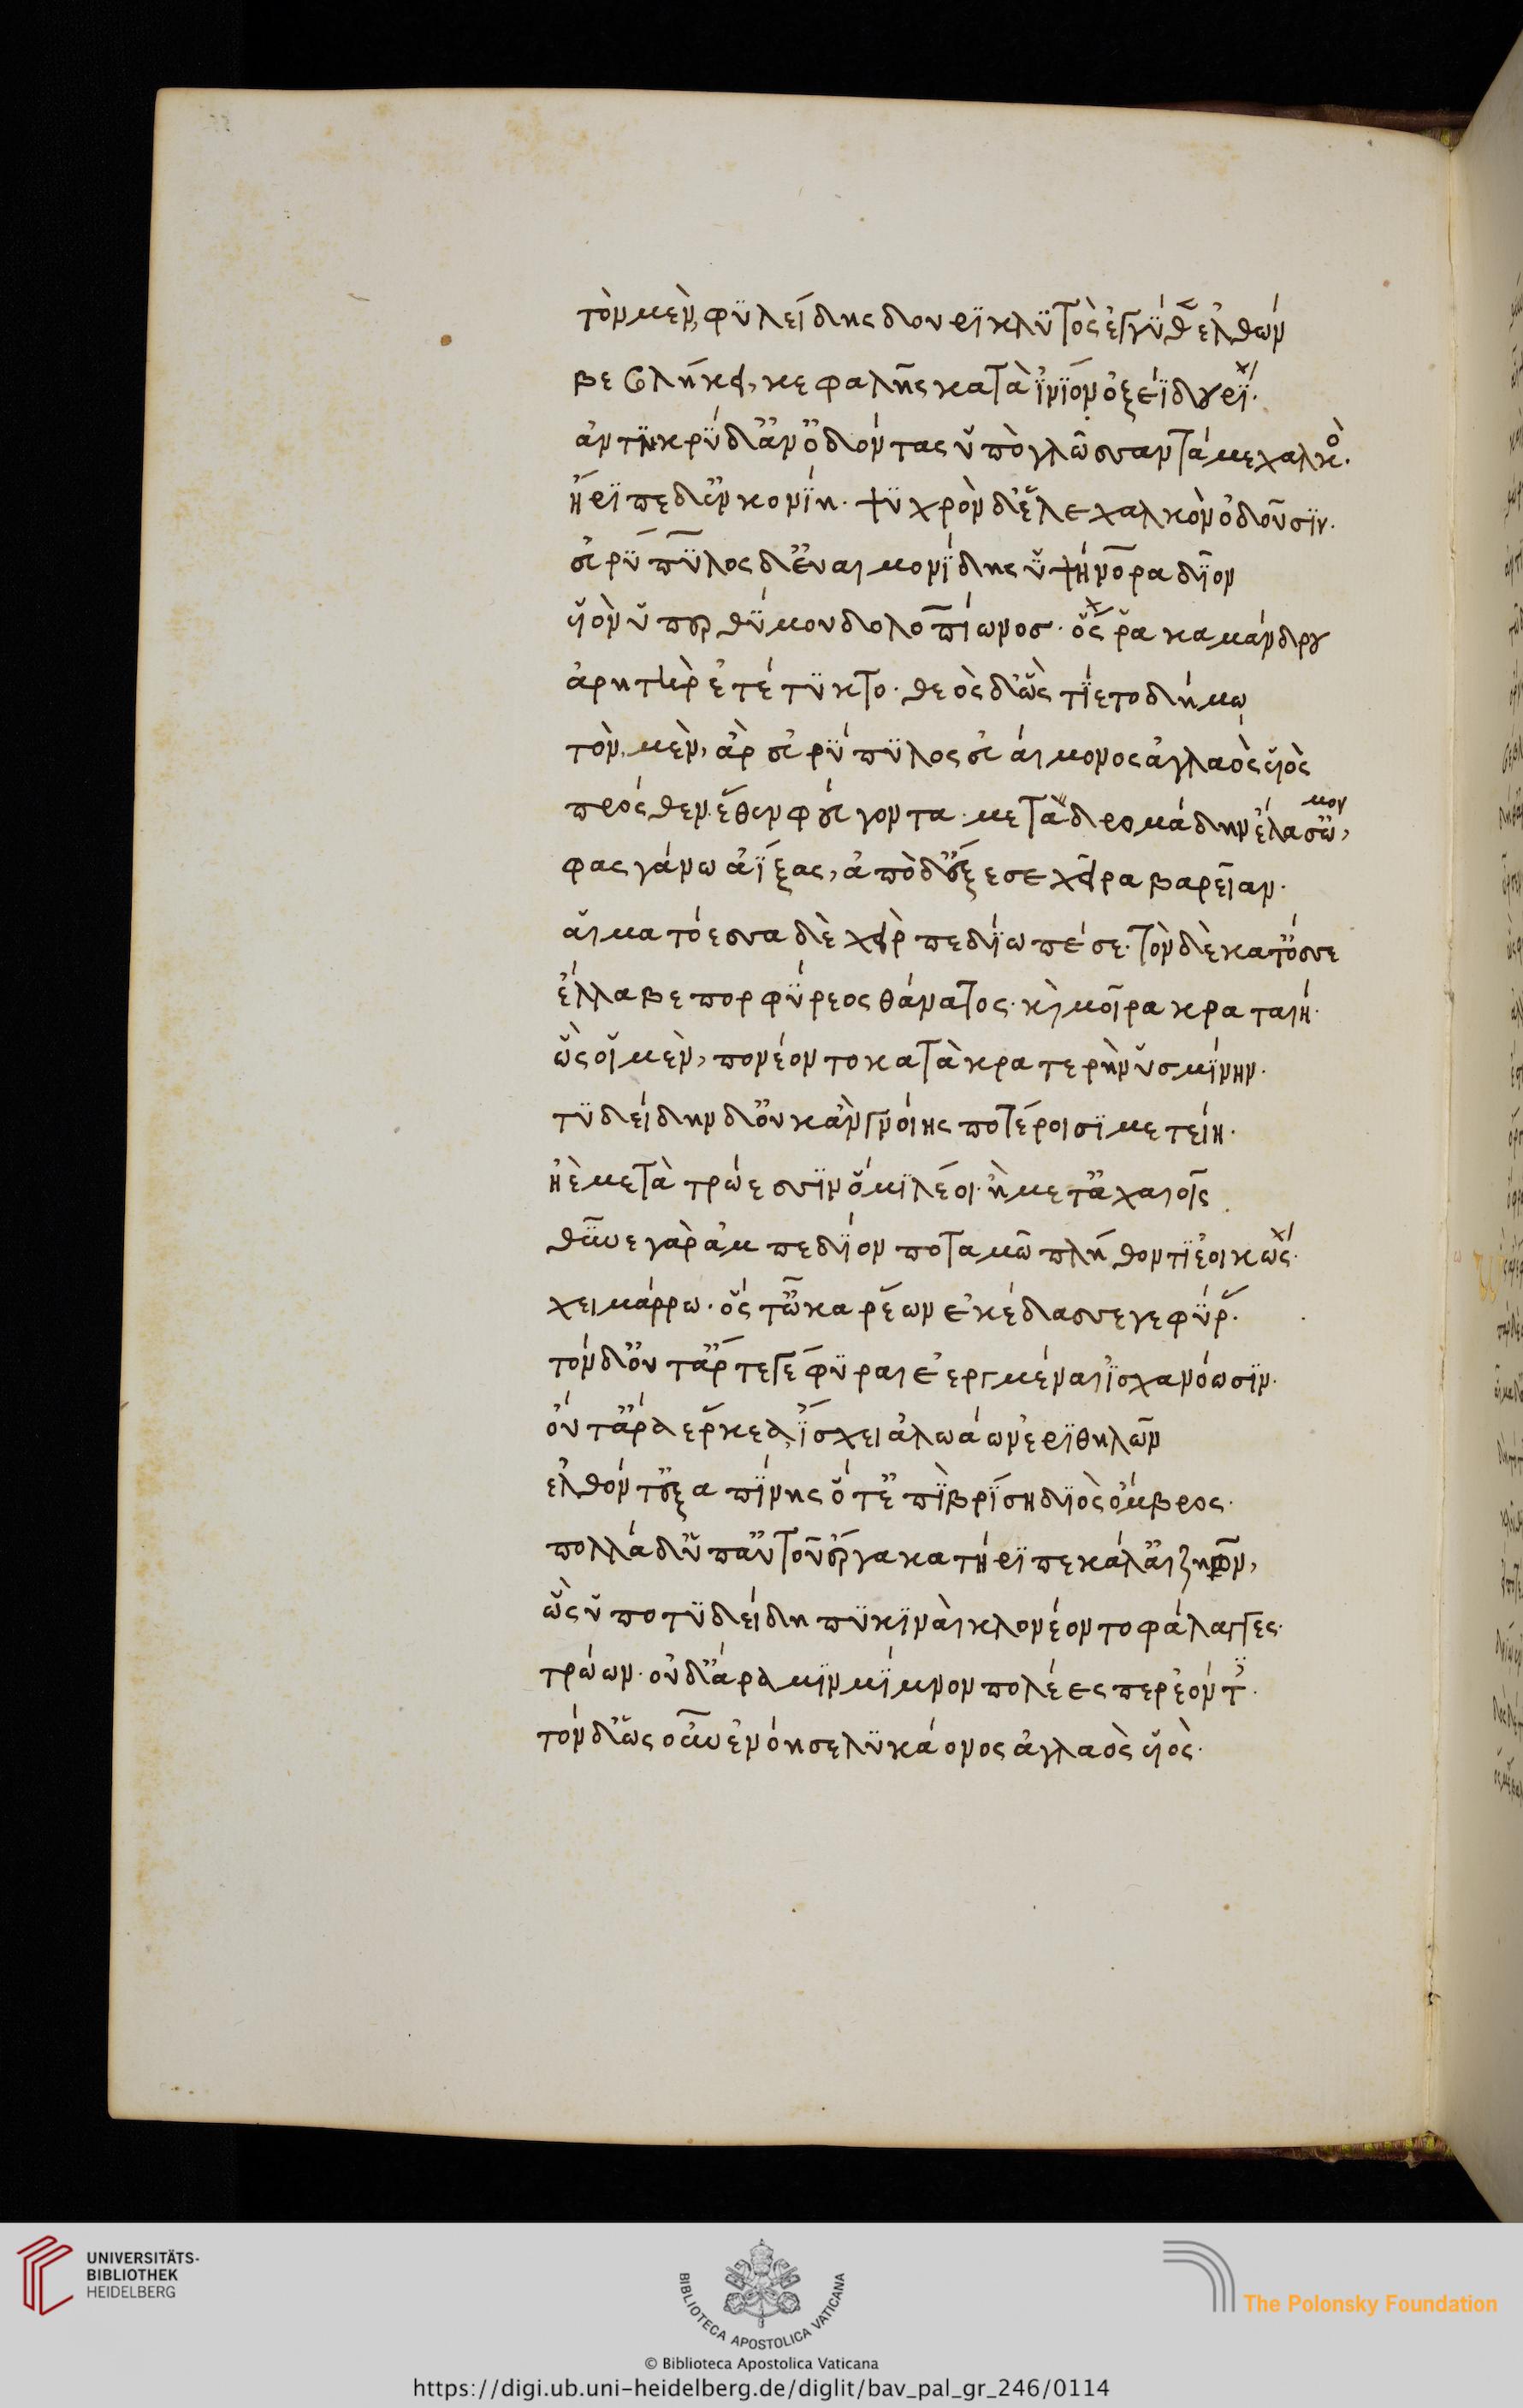 τὸν μὲν, φυλείδης δουρικλυτὸς ἐγγύθεν ἐλθὼν
βεβλήκει, κεφαλῆς κατὰ ἰνίον ὀξέϊ δουρί·
ἀντικρὺ δ' ἀν' ὀδόντας ὑπὸ γλῶσσαν τάμε χαλκός·
ἤριπε δ' ἐν κονίη· ψυχρὸν δ' ἕλε χαλκὸν ὀδοῦσιν·
εὐρύπυλος δ' εὐαιμονίδης ὑψήνορα δῖον
υἱὸν ὑπερθύμου δολοπίωνος· ὅς ῥα σκαμάνδρου
ἀρητὴρ ἐτέτυκτο· θεὸς δ' ὣς τίετο δήμω
τὸν, μὲν, ἀρ εὐρύπυλος εὐαίμονος ἀγλαὸς υἱὸς
πρόσθεν ἕθεν φεύγοντα μεταδρομάδην ἔλασ' ὦμον,
φασγάνω ἀΐξας, ἀπὸ δ' ἔξεσε χεῖρα βαρεῖαν·
αἱματόεσσα δὲ χεὶρ πεδίω πέσε· τὸν δὲ κατόσσε
ἔλλαβε πορφύρεος θάνατος· καὶ μοῖρα κραταιή·
ὣς οἱ μὲν, πονέοντο κατὰ κρατερὴν ὑσμίνην·
τυδείδην δ' οὐκ ἂν γνοίης ποτέροισι μετείη·
ἠὲ μετὰ τρώεσσιν ὁμιλέοι· ἢ μετ' ἀχαιοῖς
θῦνε γὰρ ἀμ πεδίον ποταμῶ πλήθοντι ἐοικὼς·
χειμάρρω· ὅς τ' ὦκα ῥέων ἐκέδασσε γεφύρας·
τὸν δ' οὔτ' ἄρ τε γέφυραι ἐεργμέναι ἰσχανόωσιν·
οὔτ' ἄρα ἕρκεα ἴσχει ἀλωάων ἐριθηλῶν
ἐλθόντ' ἐξαπίνης ὅτ' ἐπιβρίση διὸς ὄμβρος·
πολλὰ δ' ὑπ' αὐτοῦ ἔργα κατήριπε κάλ' αἰζηῶν,
ὣς ὑπὸ τυδείδη πυκιναὶ κλονέοντο φάλαγγες·
τρώων· οὐδ' ἄρα μιν μίμνον πολέες περ ἐόντες·
τὸν δ' ὡς οὖν ἐνόησε λυκάονος ἀγλαὸς υἱὸς·
UNIVERSITÄTS-
BIBLIOTHEK
HEIDELBERG
BIBLIOTECA APOSTOLICA VATICANA
The Polonsky Foundation
© Biblioteca Apostolica Vaticana
https://digi.ub.uni-heidelberg.de/diglit/bav_pal_gr_246/0114